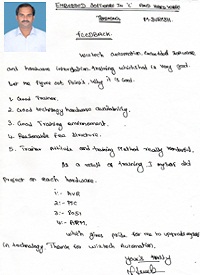 EMBEDDED SOFTWARE IN 'C' AND HARD WARE
M. SURESH.
FEEDBACK
Wiztech Automation Embedded Software
and hardware Integration training which had is very good.
Let me figure out Points, why it is Good.
1. Good Trainer.
2. Good technology hardware availability.
3. Good Training environment.
4. Reasonable Fee structure.
5. Trainer Attitude and training Method really
As a result of training I myself did
Project on each hardware.
1:- AVR
2:- PIC
3:- 8051
4:- ARM.
which gives pride for me to upgrade myself
in technology. Thanks for Wiztech Automation.
Yours truly